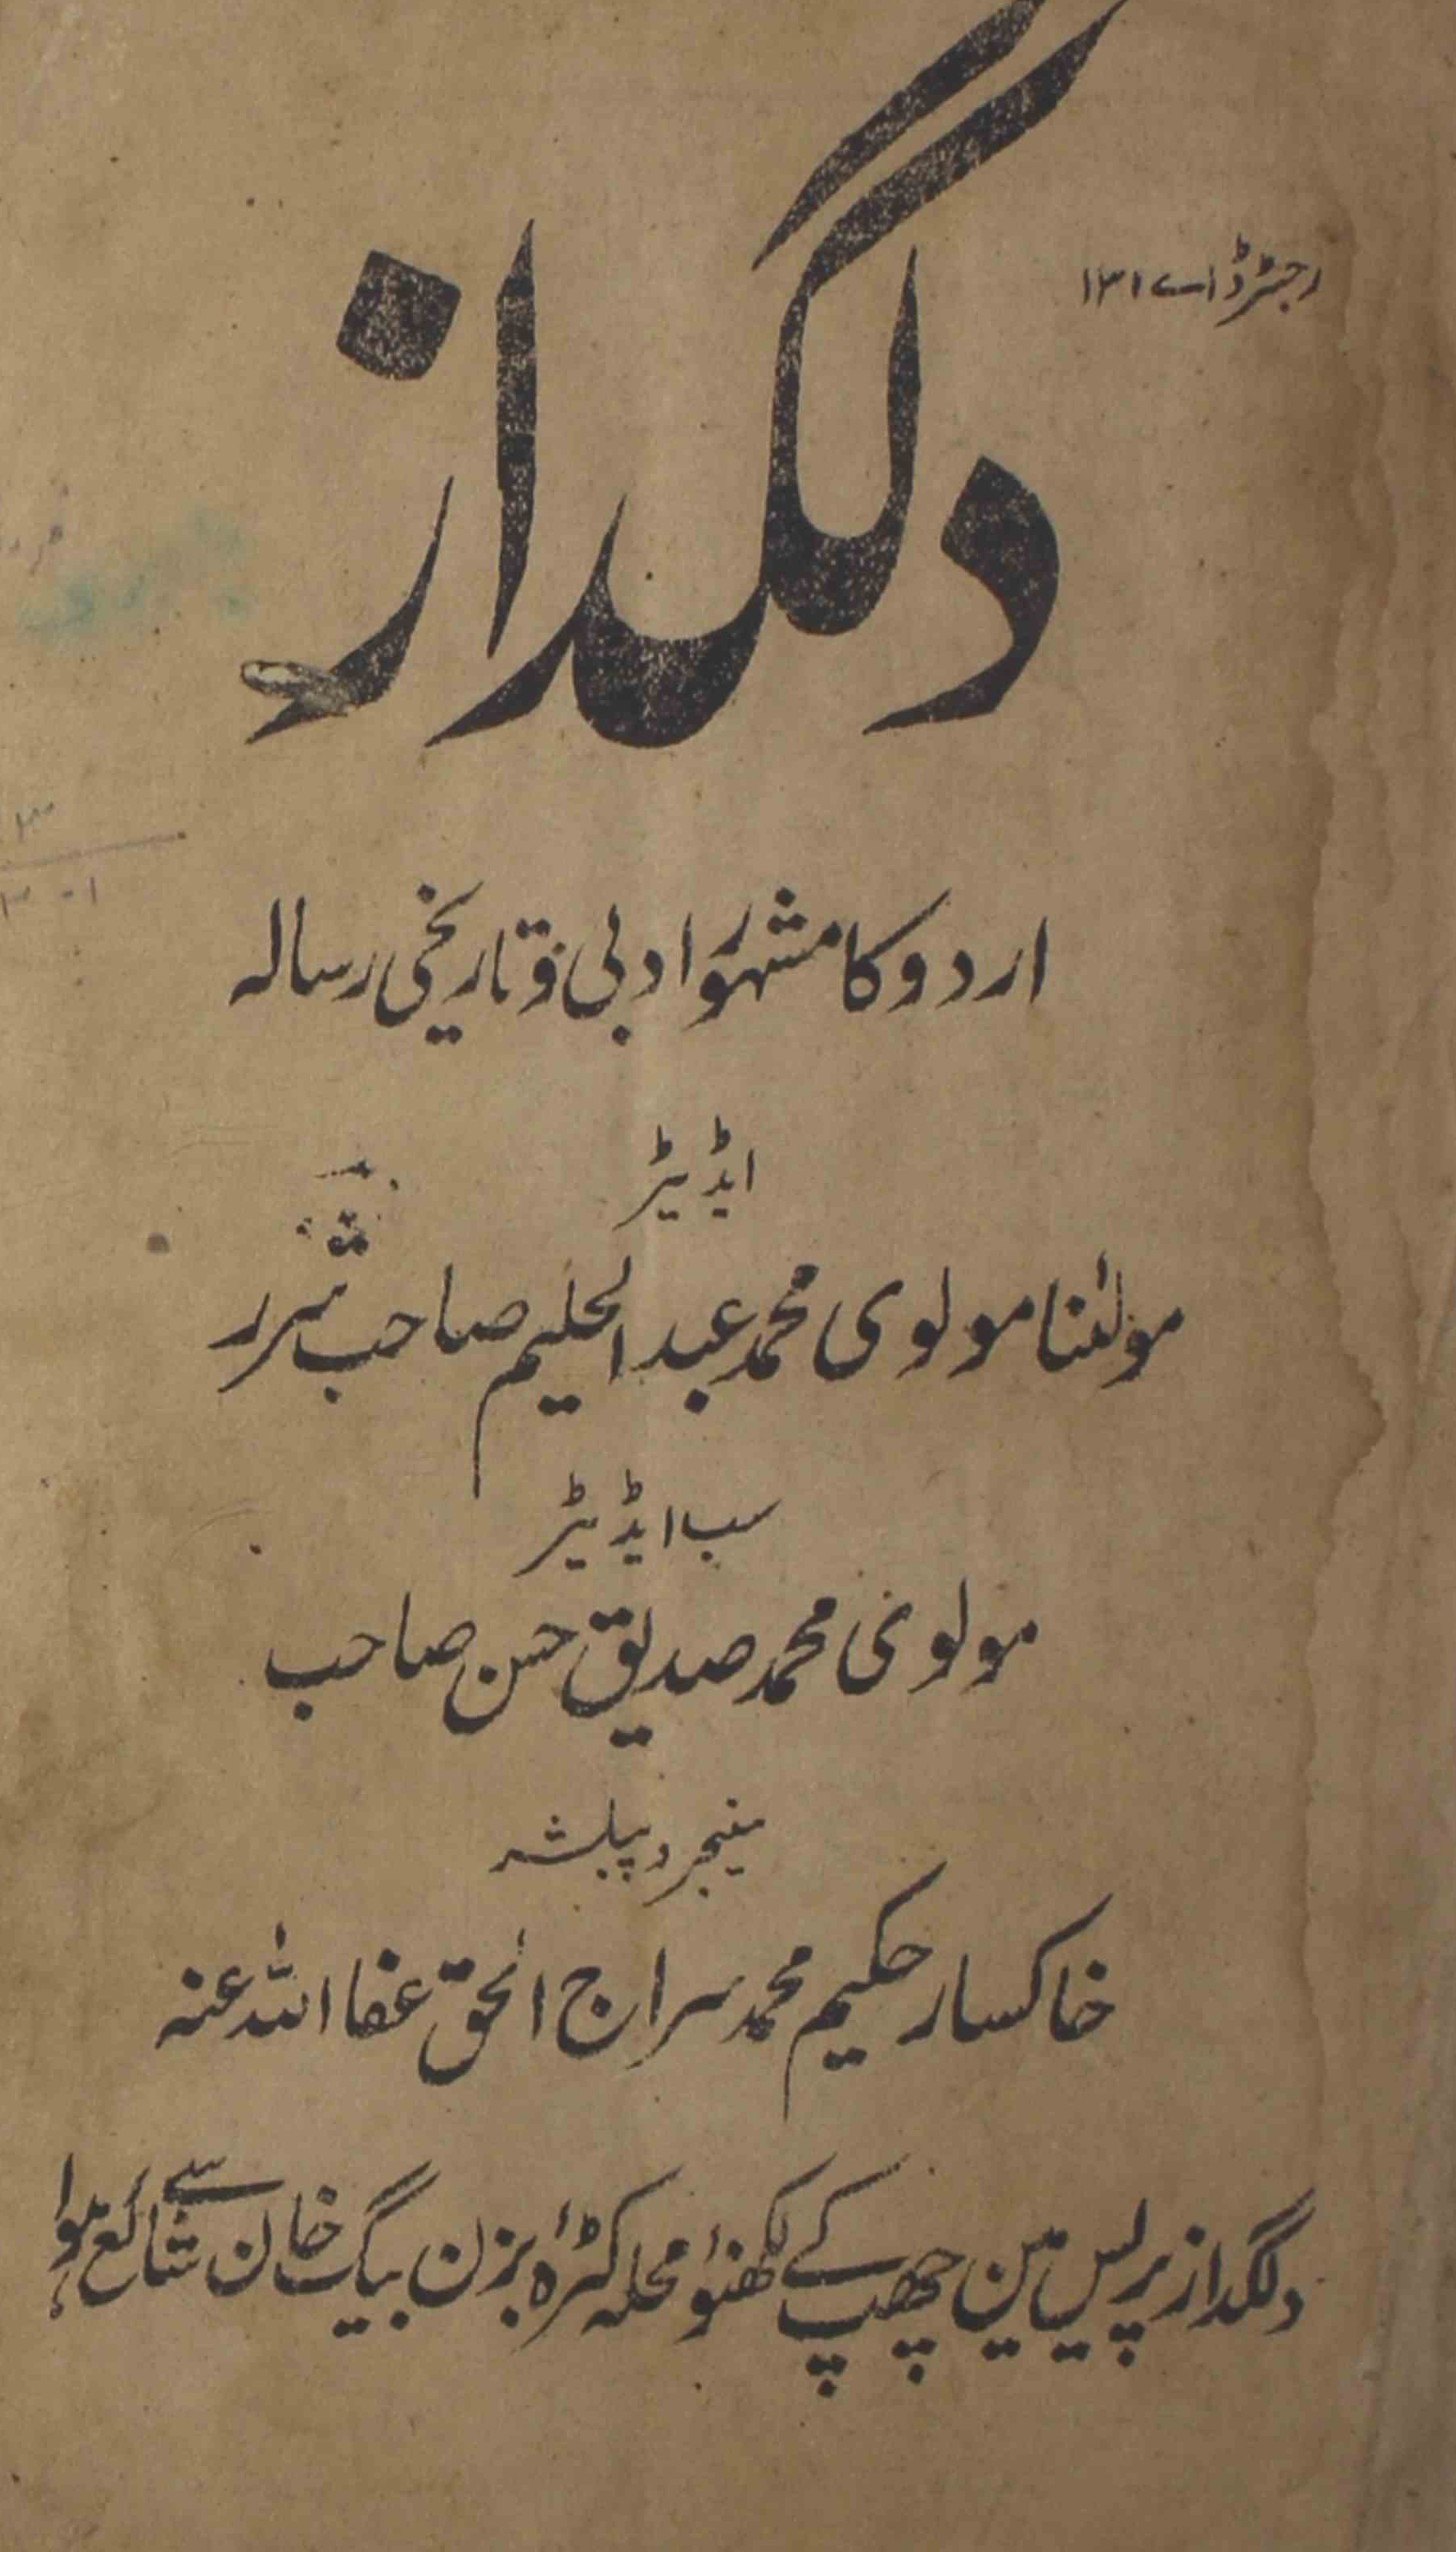 رجسٹرڈ اے ۱۳۱
دلگداز
اردو کا مشہور ادبی و تاریخی رسالہ
ایڈیٹر
مولٰنا مولوی محمد عبدالحلیم صاحب شرر
سب ایڈیٹر
مولوی محمد صدیق حسن صاحب
مینجر و پبلشر
خاکسار حکیم محمد سراج الحق عفا اللہ عنہ
دلگداز پریس مین چھپ کے لکھنؤ محلہ کٹرۂ بزن بیگ خان سے شائع ہوا